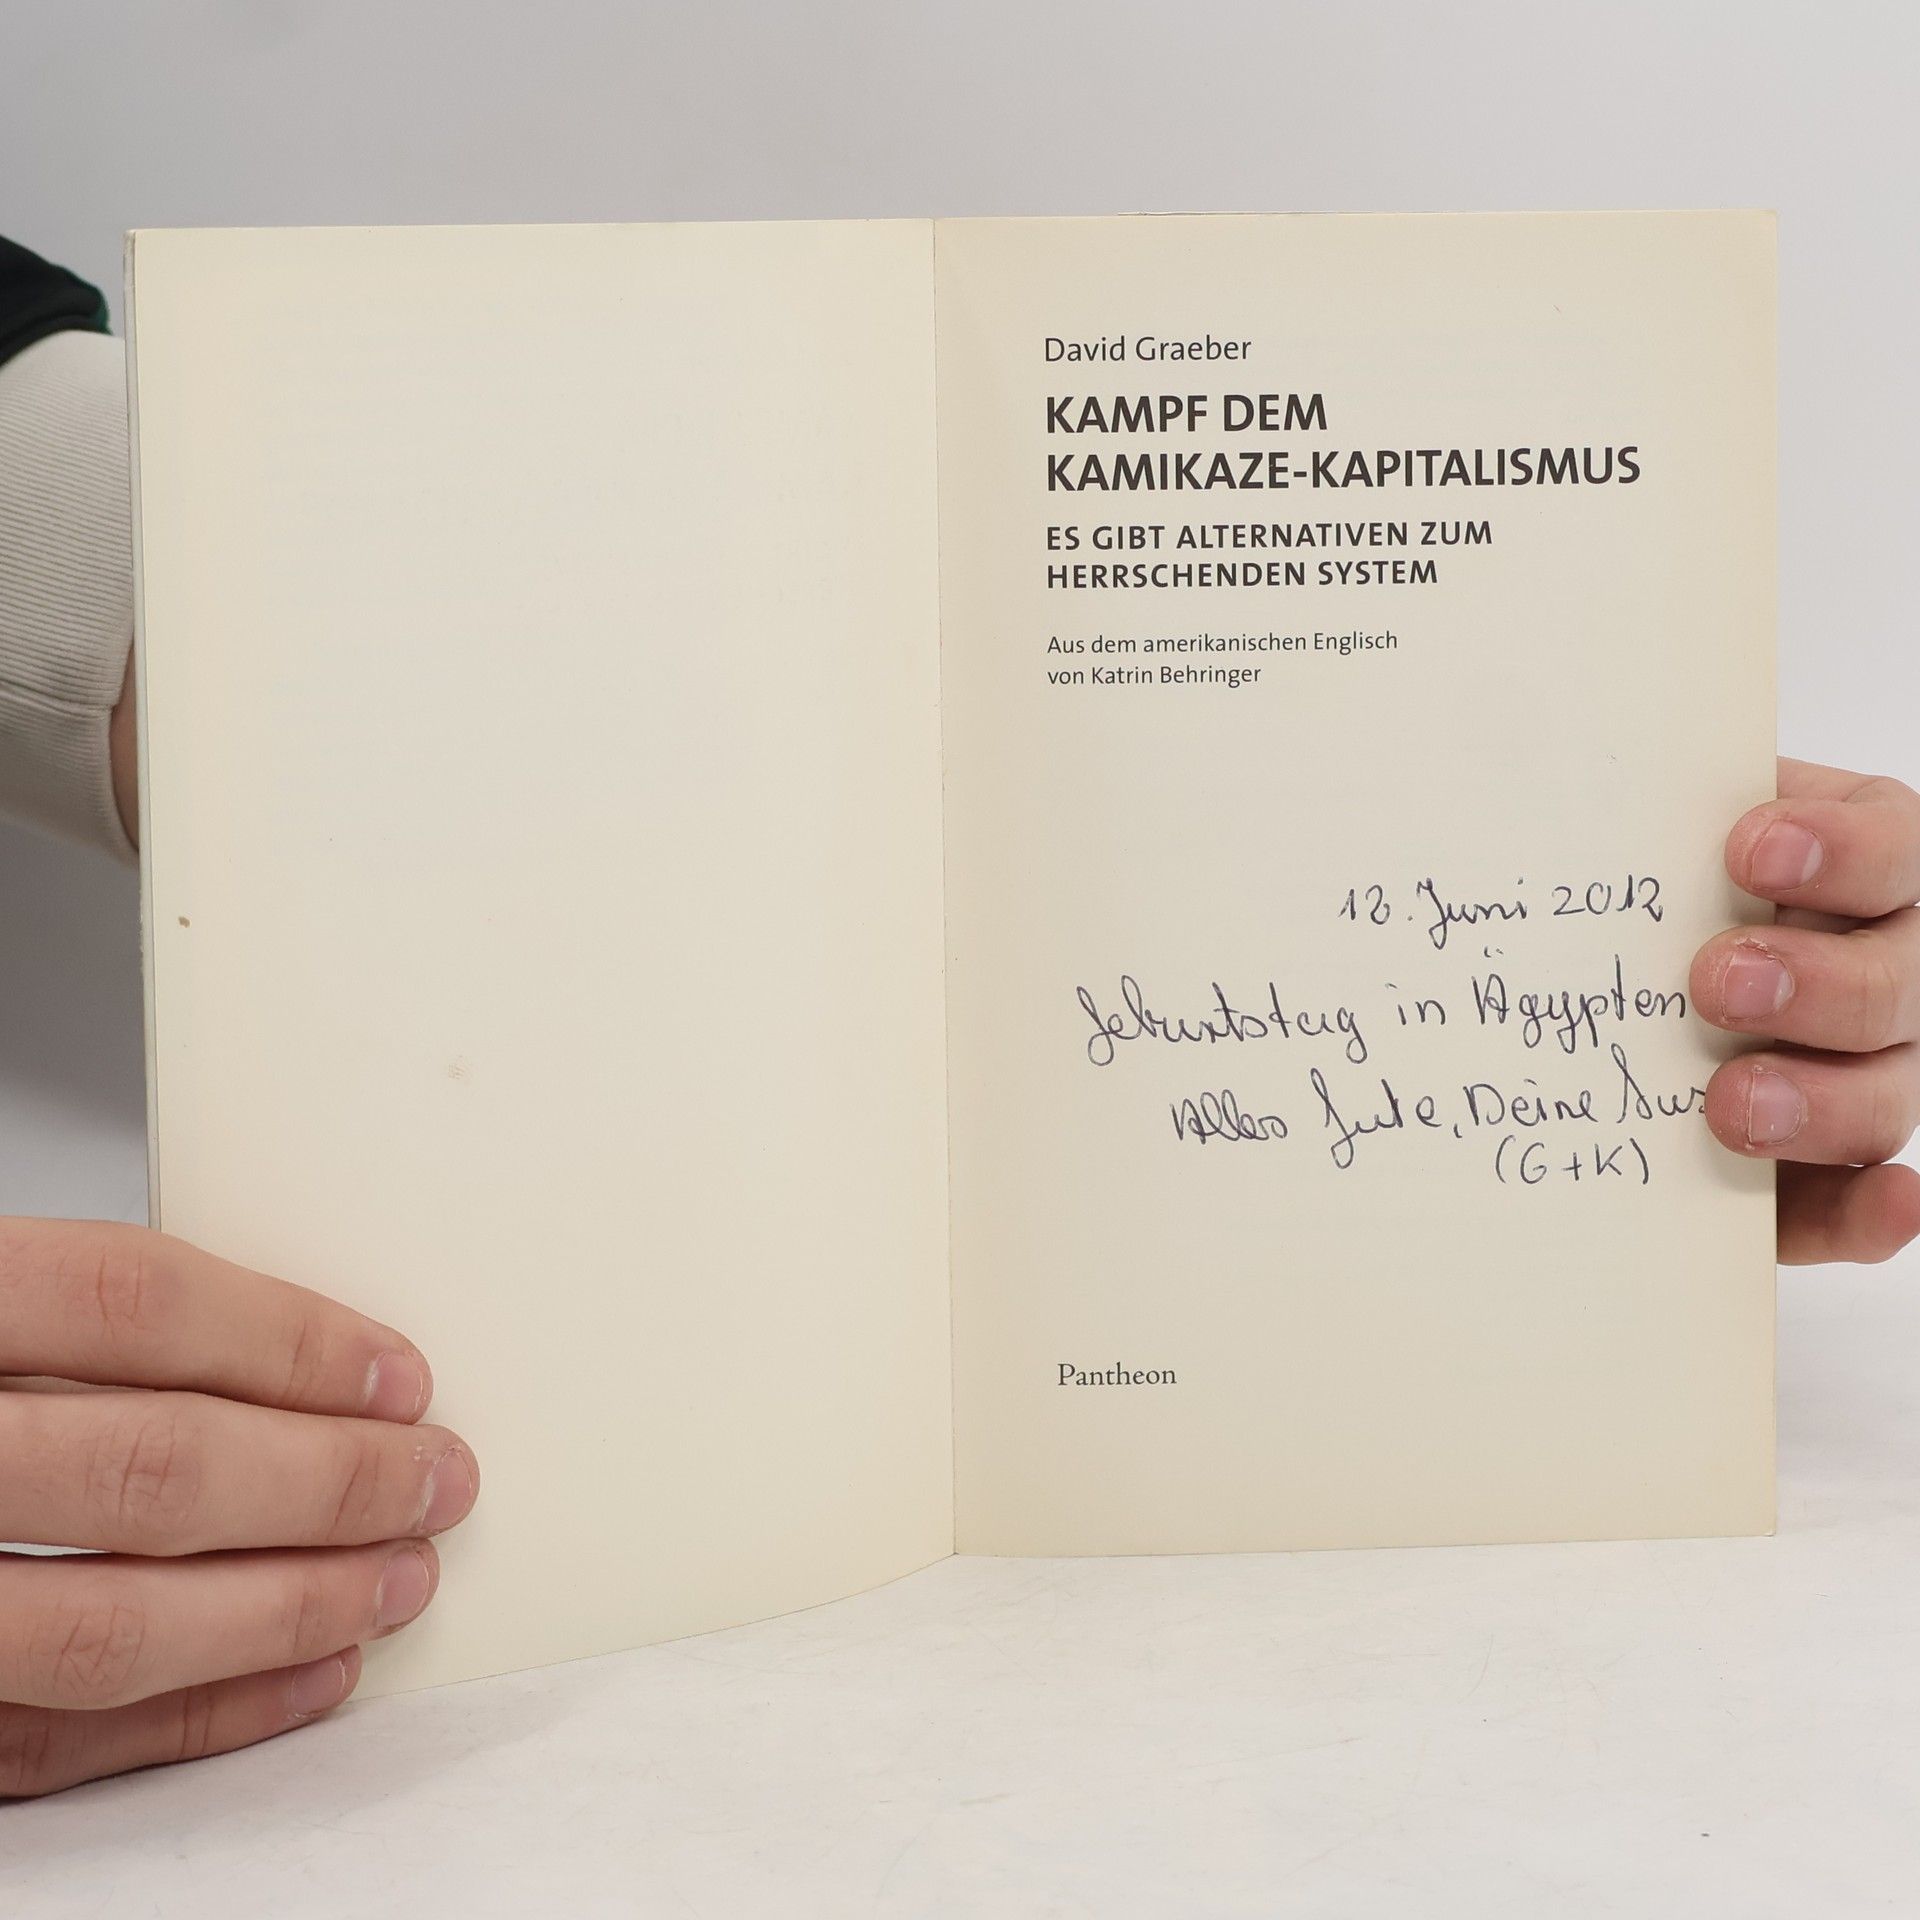 David Graeber
KAMPF DEM
KAMIKAZE-KAPITALISMUS
ES GIBT ALTERNATIVEN ZUM
HERRSCHENDEN SYSTEM
Aus dem amerikanischen Englisch
von Katrin Behringer
Juni 2012
Geburtstag in Ägypten
Alles Gute, Deine
(G+K)
Pantheon